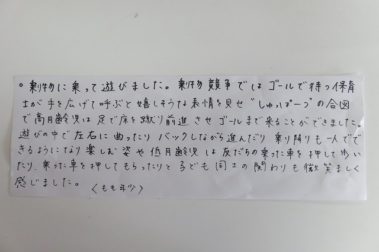 ○乗り物に乗って遊びました。乗り物競争ではゴールで待つ保育
士が手を広げて呼ぶと嬉しそうな表情を見せ"しゅっぱーつ"の合図
で高月齢児は足で床を蹴り前進させゴールまで来ることができました。
遊びの中で左右に曲ったりバックしながら進んだり乗り降りも一人でで
きるようになり楽しむ姿や低月齢児は友だちの乗った車を押して歩い
たり、乗った車を押してもらったりと子ども同士の関わりも微笑ましく
感じました。 (もも年少)